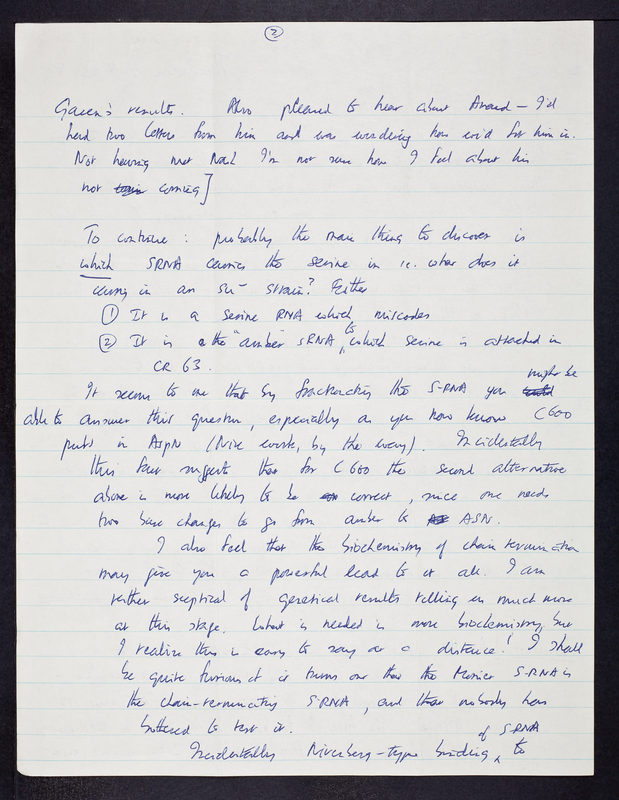 ②
Garen's results. Also pleased to hear about Anand — I'd
had two letters from him and was wondering how we'd fit him in.
Not having met Nail I'm not sure how I feel about his
not coming]
To continue : probably the main thing to discover is
which SRNA carries the serine in i.e. what does it
carry in an su⁻ strain? Either
① It is a serine RNA which miscodes
② It is the "amber" sRNA, to which serine is attached in
CR 63.
It seems to me that by fractionating the S-RNA you might be
able to answer this question, especially as you now know C600
puts in AspN (Nice work, by the way). Incidentally
this fact suggests that for C600 the second alternative
above is more likely to be correct, since one needs
two base changes to go from amber to ASN.
I also feel that the biochemistry of chain termination
may give you a powerful lead to it all. I am
rather sceptical of genetical results telling us much more
at this stage. What is needed is more biochemistry, but
I realize this is easy to say at a distance! I shall
be quite furious if it turns out that the Monier S-RNA is
the chain-terminating SRNA, and that nobody has
bothered to test it.
Incidentally Nirenberg-type binding of SRNA to